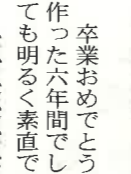 卒業おめでとう
作った六年間でし
ても明るく素直で